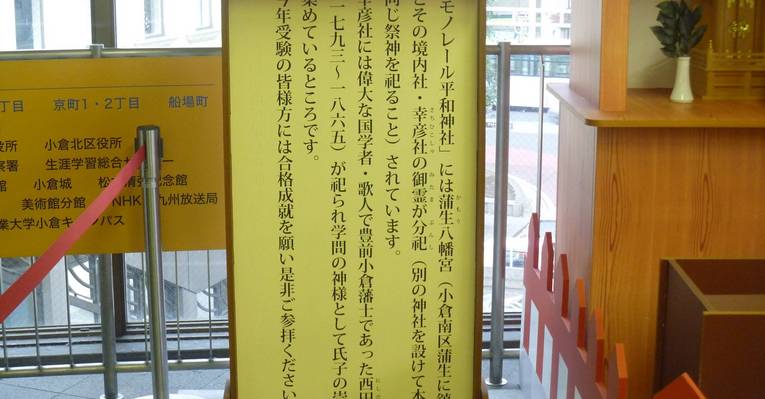 モノレール平和神社」には蒲生八幡宮(小倉南区蒲生に鎮
とその境内社・幸彦社の御霊が分祀(別の神社を設けて本
同じ祭神を祀ること)されています。
幸彦社には偉大な国学者・歌人で豊前小倉藩士であった西田
一七九三~一八六五)が祀られ学問の神様として氏子の崇
集めているところです。
今年受験の皆様方には合格成就を願い是非ご参拝ください
かもう
さちひこしゃ
みたま
ぶんし
にしだ
丁目 京町1・2丁目 船場町
役所 小倉北区役所
察署 生涯学習総合センター
館 小倉城 松本清張記念館
美術館分館 NHK北九州放送局
業大学小倉キャンパス